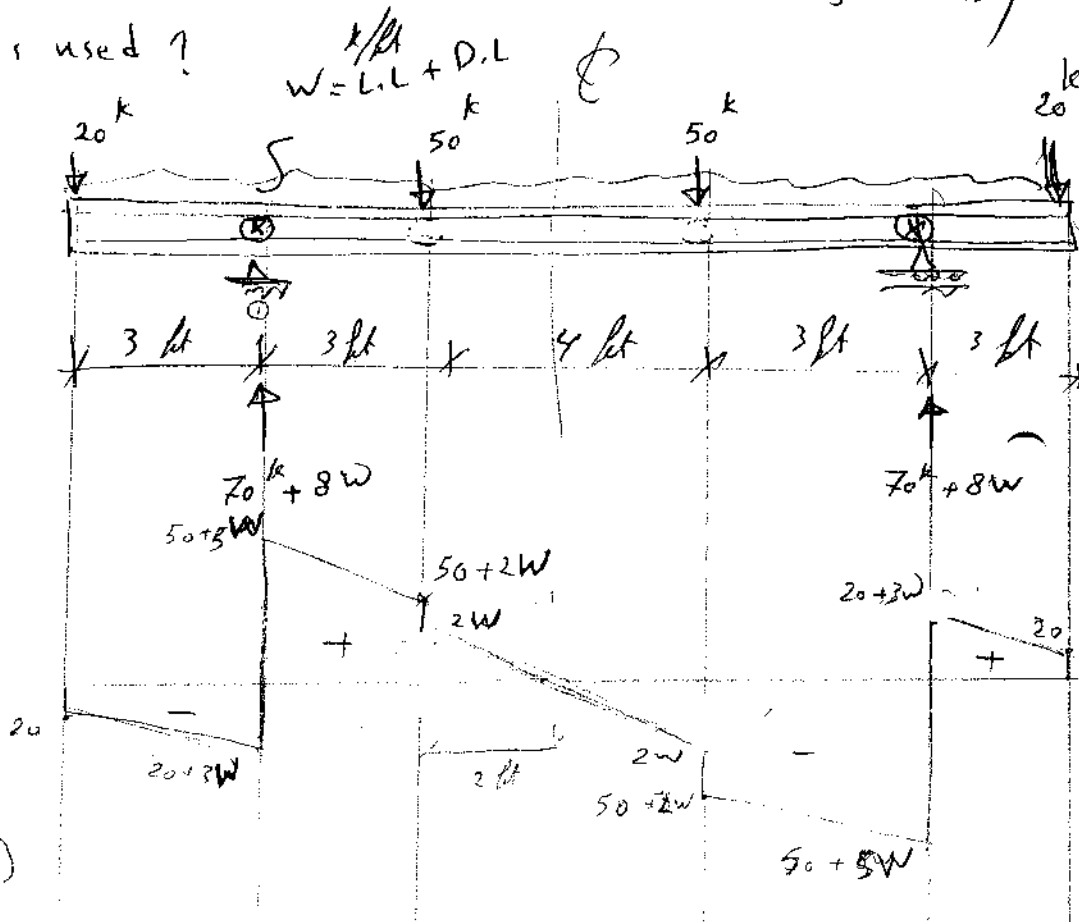 used ?
k/ft
W = L.L + D.L
20 k
50 k
50 k
20 k
3 ft
3 ft
4 ft
3 ft
3 ft
70 k + 8 W
70 k + 8 W
50 + 5W
50 + 2W
2W
20 + 3W
20
+
+
20
-
20 + 3W
2 ft
2W
-
50 + 2W
50 + 5W